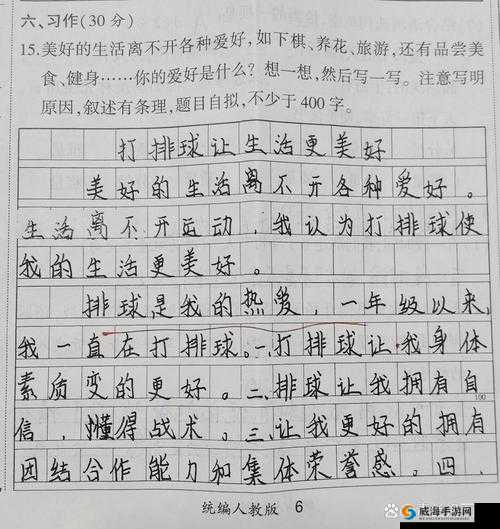 六、习作(30分)
15.美好的生活离不开各种爱好,如下棋、养花、旅游,还有品尝美
食、健身……你的爱好是什么?想一想,然后写一写。注意写明
原因,叙述有条理,题目自拟,不少于400字。
打排球让生活更美好
美好的生活离不开各种爱好。
生活离不开运动,我认为打排球使
我的生活更美好。
排球是我的热爱,一年级以来,
我一直在打排球。一、打排球让我身体
素质变的更好。二、排球让我拥有自
100
信,懂得战术。三、让我更好的拥有
团结合作能力和集体荣誉感。四、
统编人教版 6
威海手游网